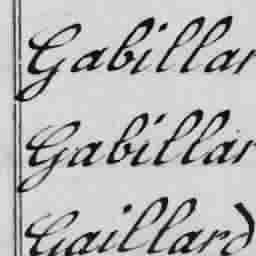 Gabillar
Gabillar
Gaillard